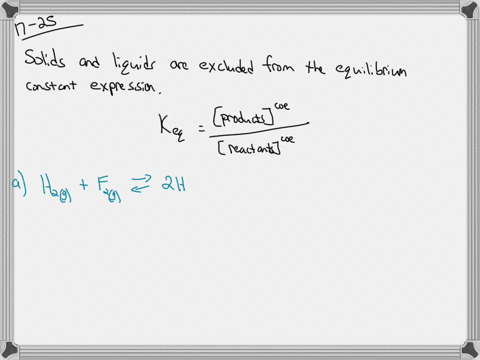 17-25
Solids and liquids are excluded from the equilibrium
constant expression.
Keq = [products]^coe / [reactants]^coe
a) H2(g) + F2(g) ⇌ 2H